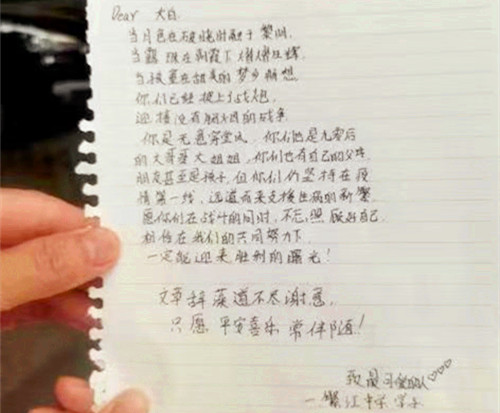 Dear 大白
当月色在破晓时融于黎明,
当露珠在朝霞下熠熠生辉
当孩童在甜美的梦乡畅想
你们已经披上战袍,
迎接没有硝烟的战争
你是无意穿堂风、你们也是九零后
的大哥哥大姐姐,你们也有自己的父母
朋友甚至是孩子,但你们仍坚持在疫
情第一线,远道而来支援生病的新
愿你们在战斗的同时,不忘照顾好自己
相信在我们的共同努力下,
一定能迎来胜利的曙光!
文章辞藻道不尽谢意,
只愿平安喜乐常伴随!
致最可爱的人♡♡♡
一 江中学 学子